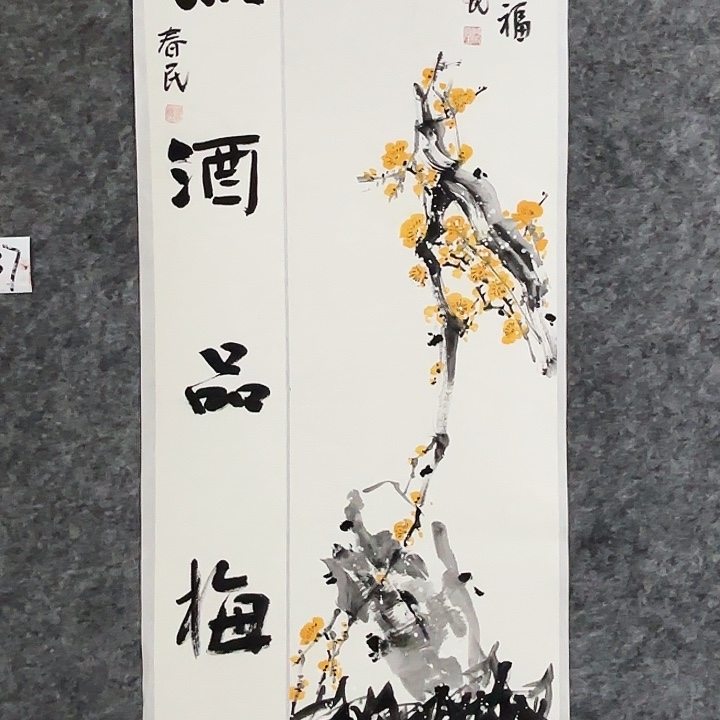 福
酒品梅
春民